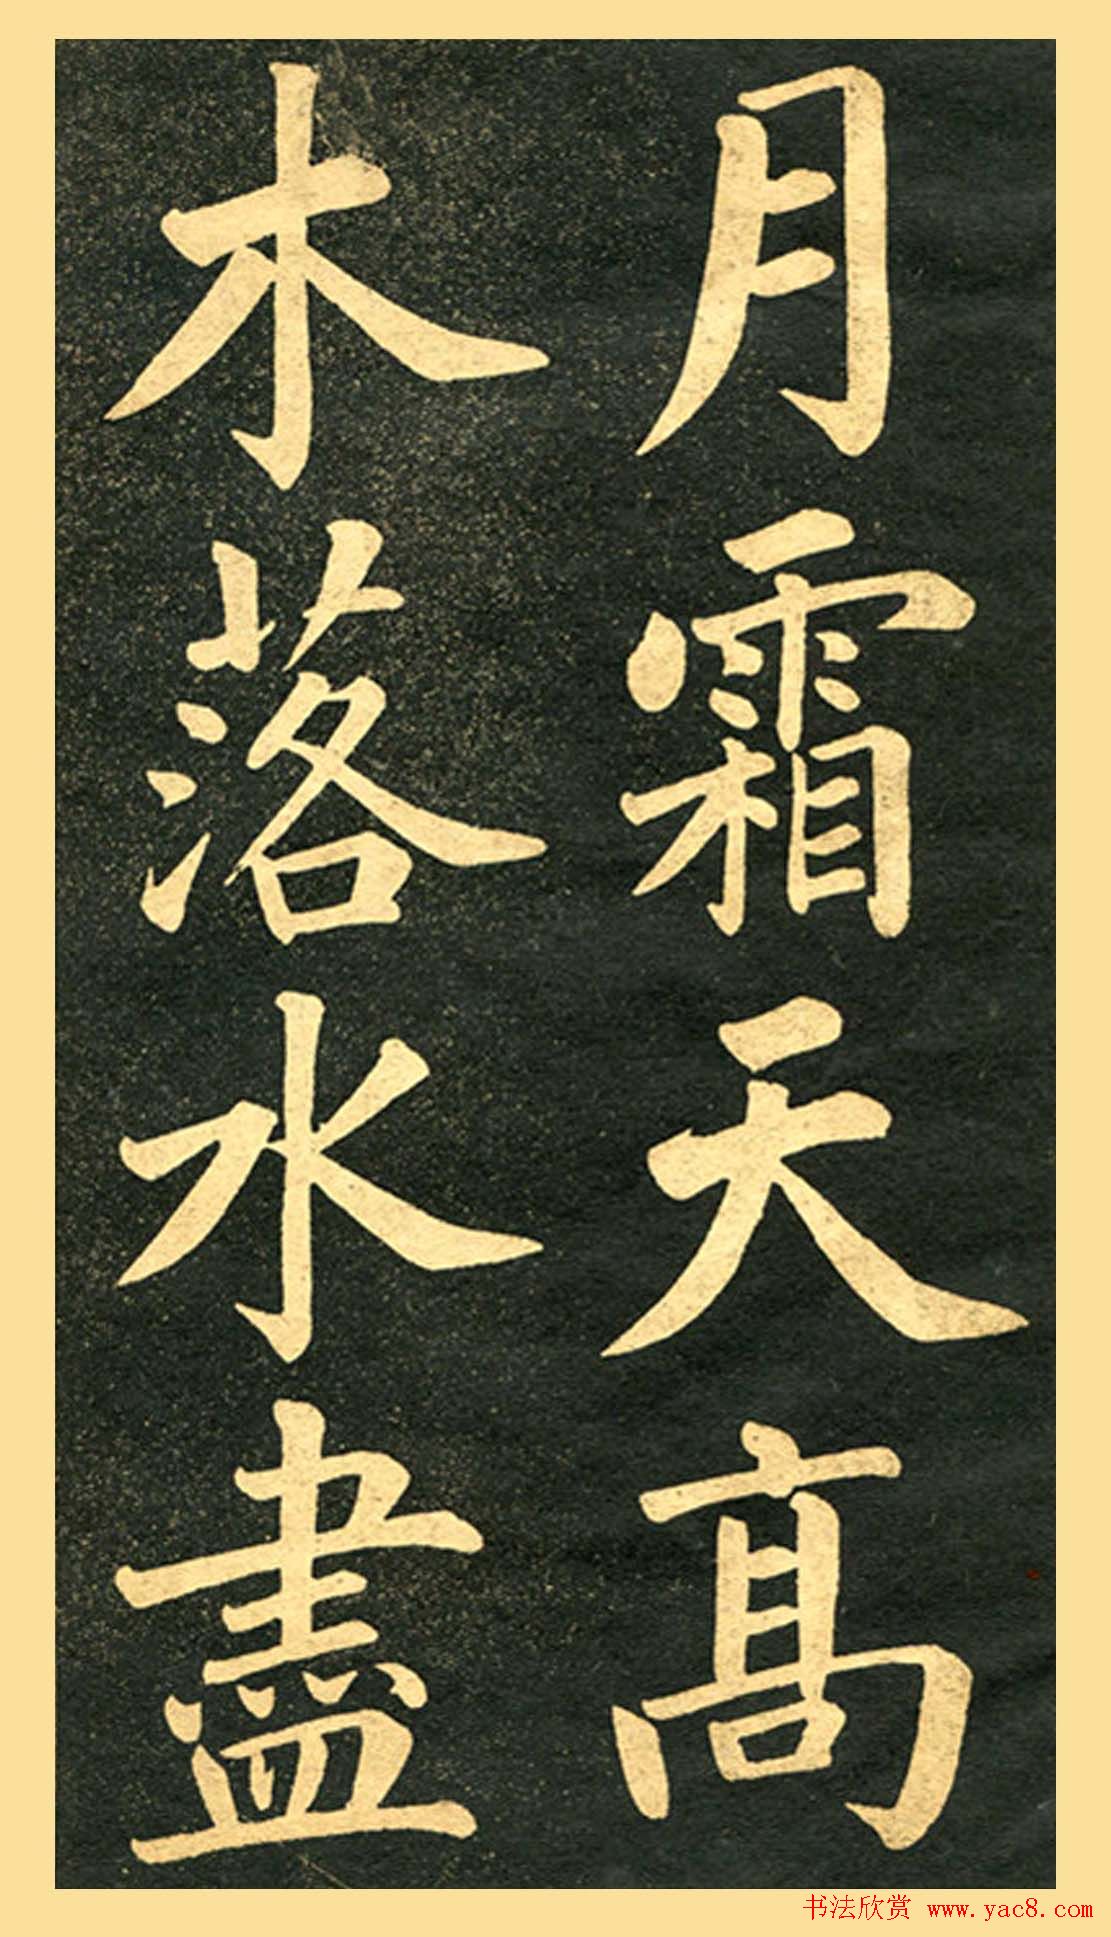 月霜天髙
木落水盡
书法欣赏 www.yac8.com